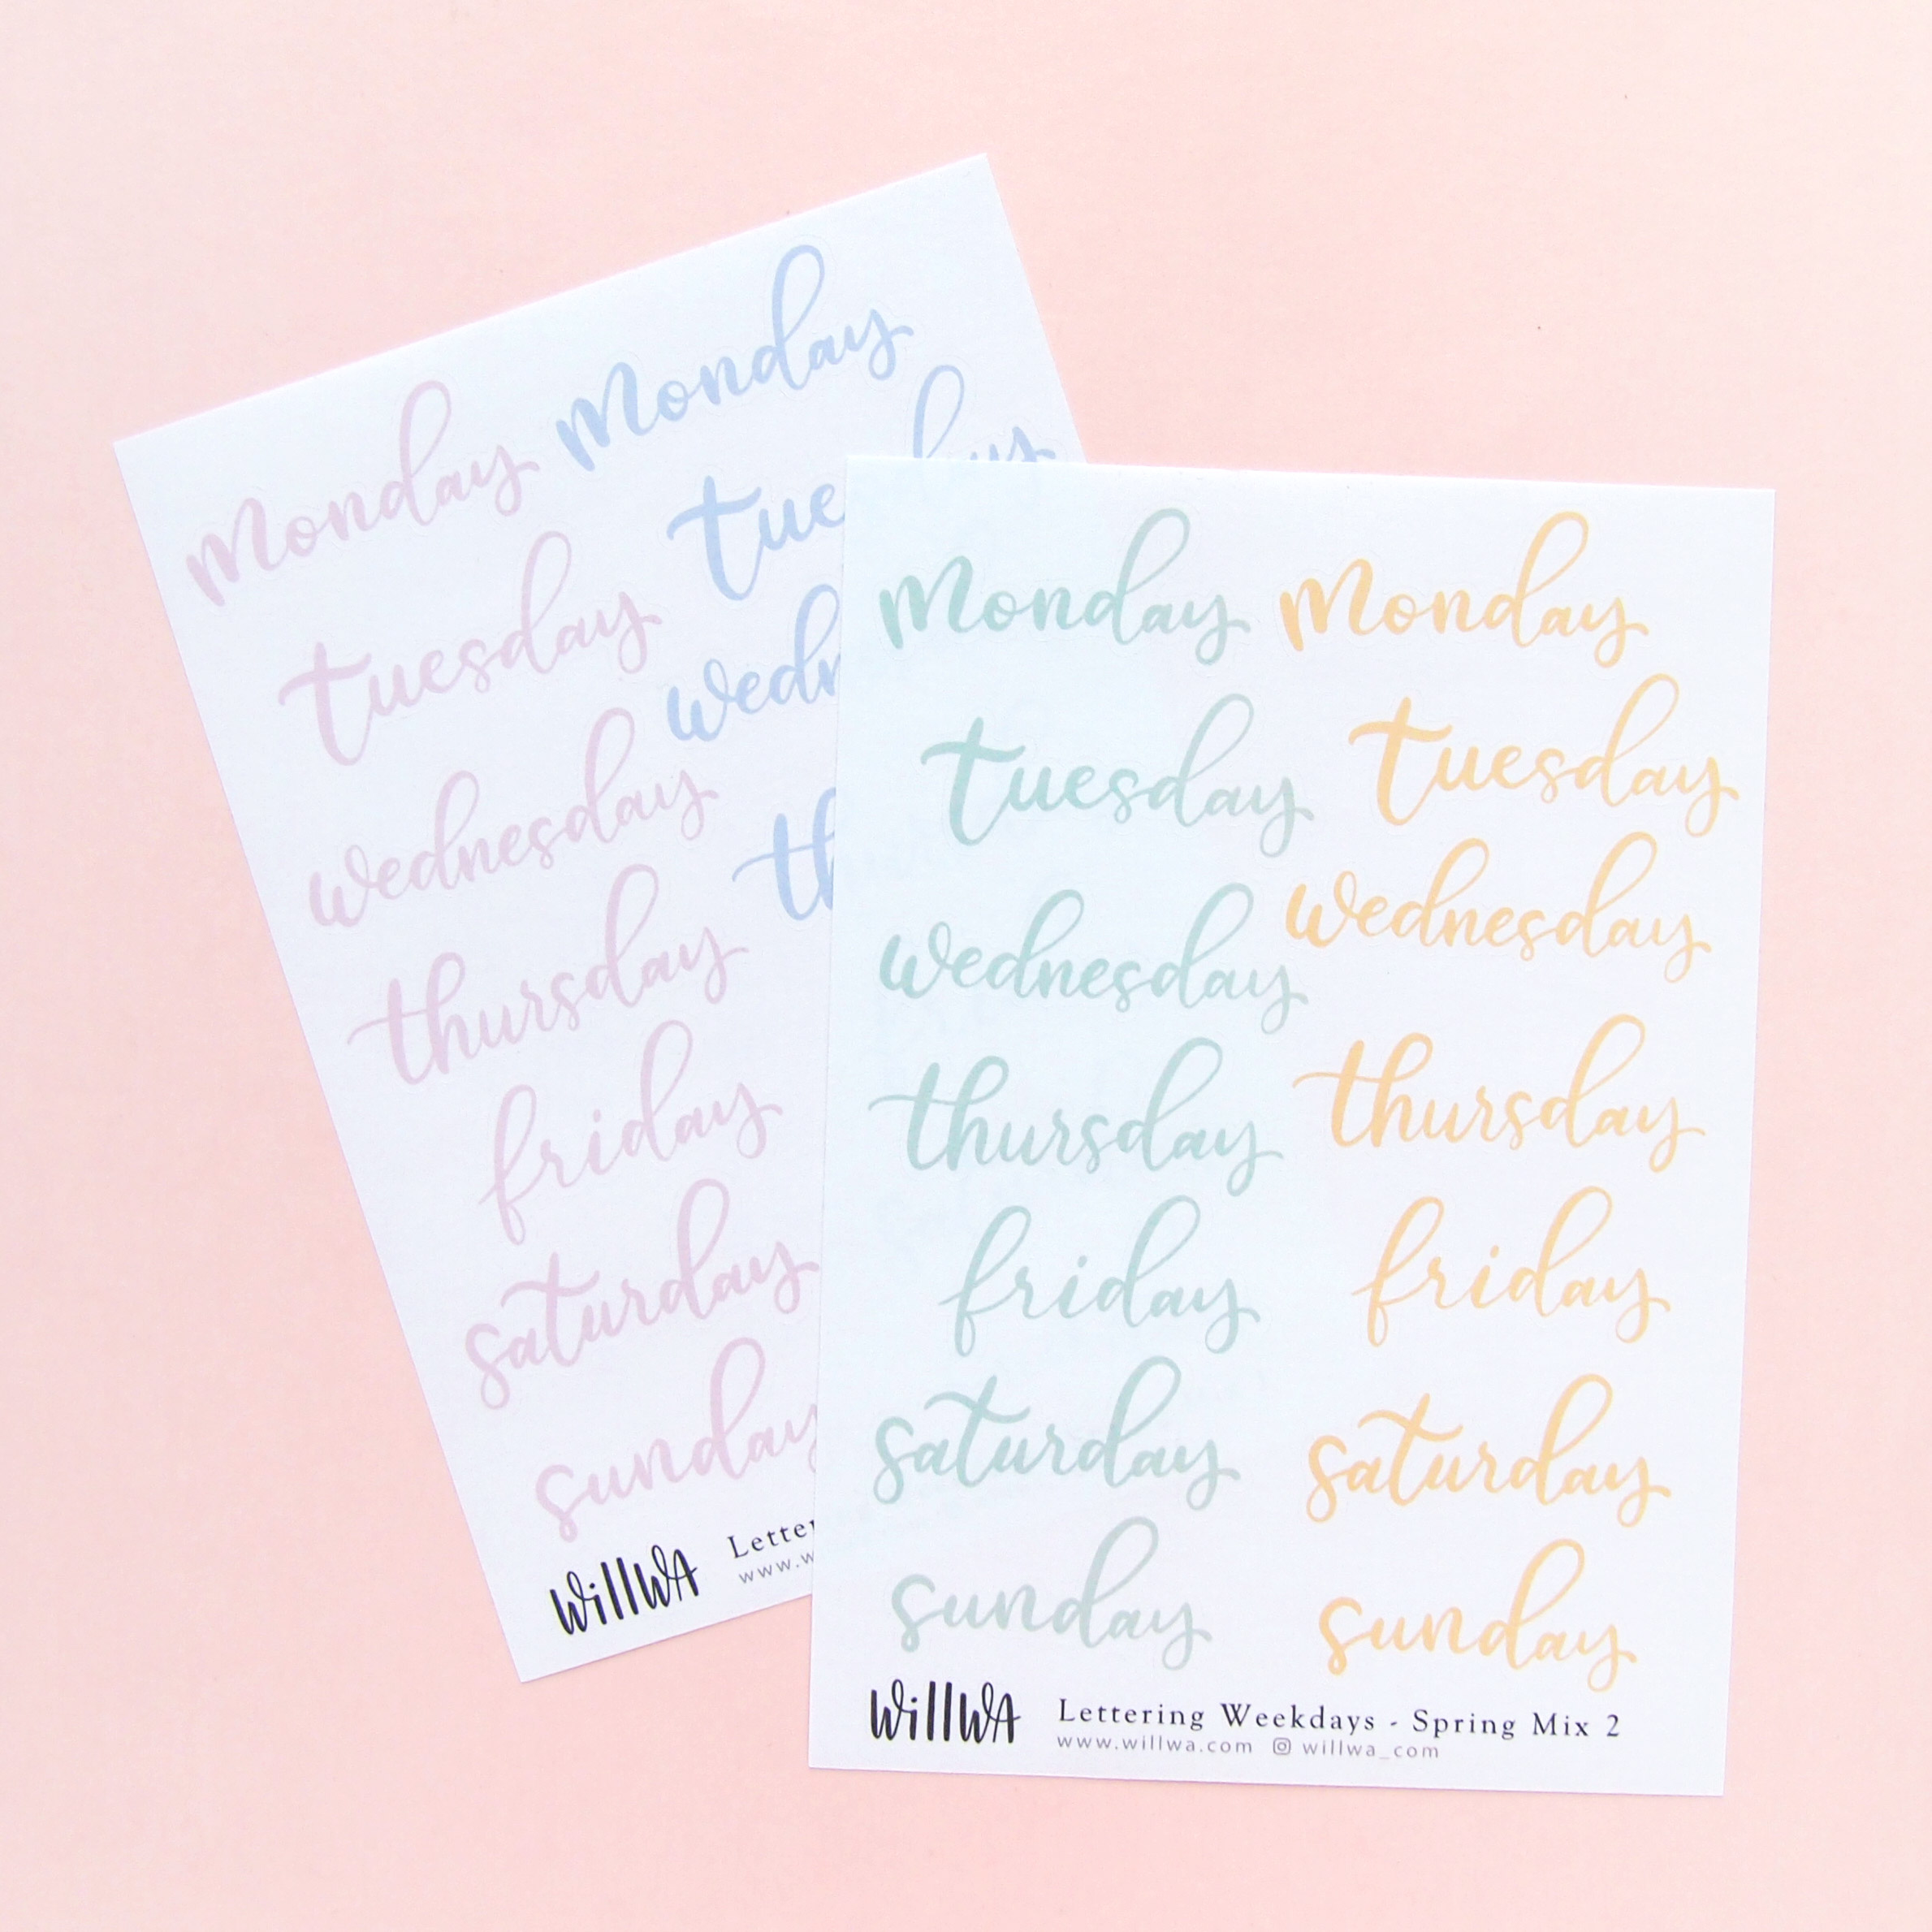 Monday Monday
tuesday tue
wednesday wedn
thursday th
friday
saturday
sunday
WillWA Letter
www.w
Monday Monday
tuesday tuesday
wednesday wednesday
thursday thursday
friday friday
saturday saturday
sunday sunday
WillWA Lettering Weekdays - Spring Mix 2
www.willwa.com willwa_com